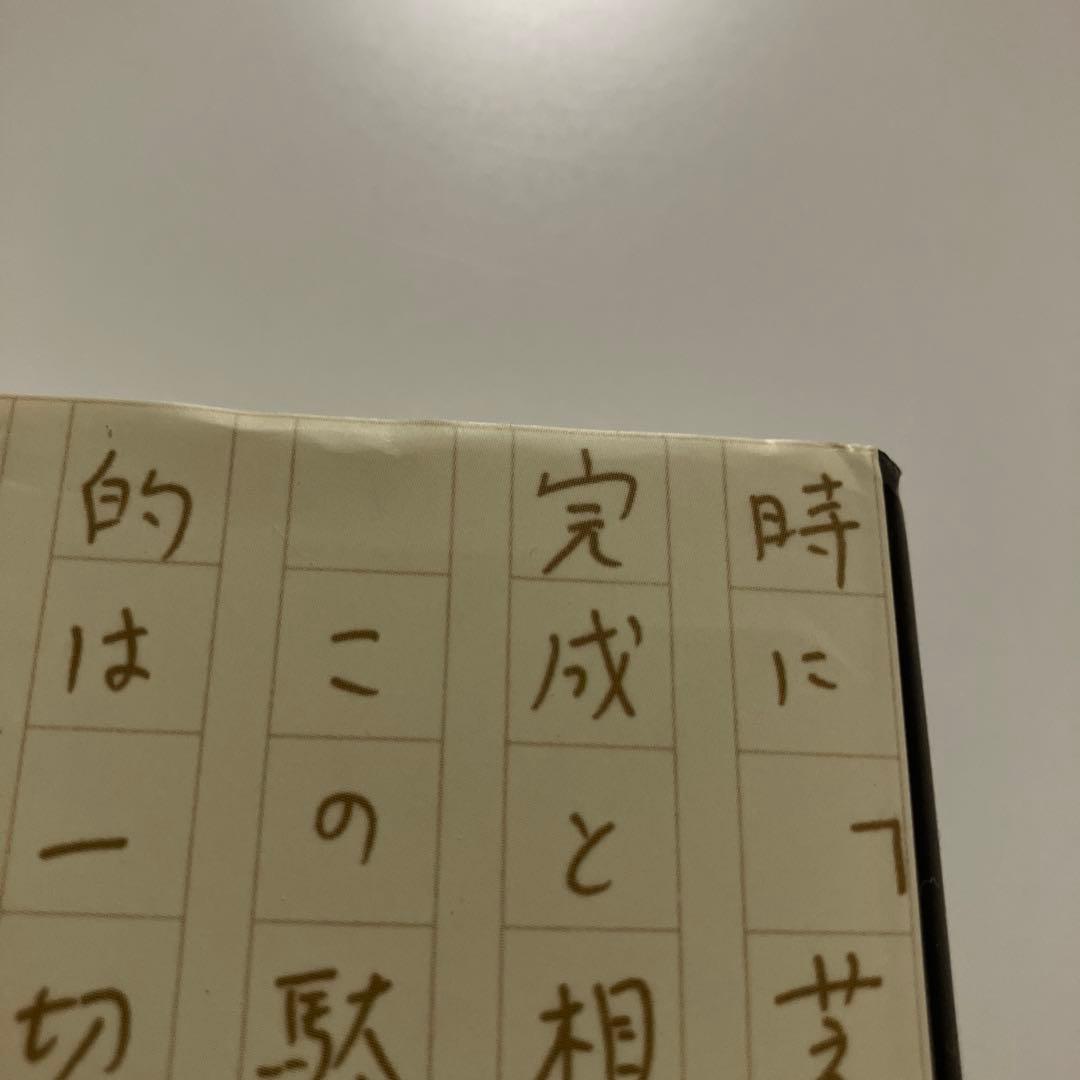 時に「芸
完成と相
この駄
的は一切